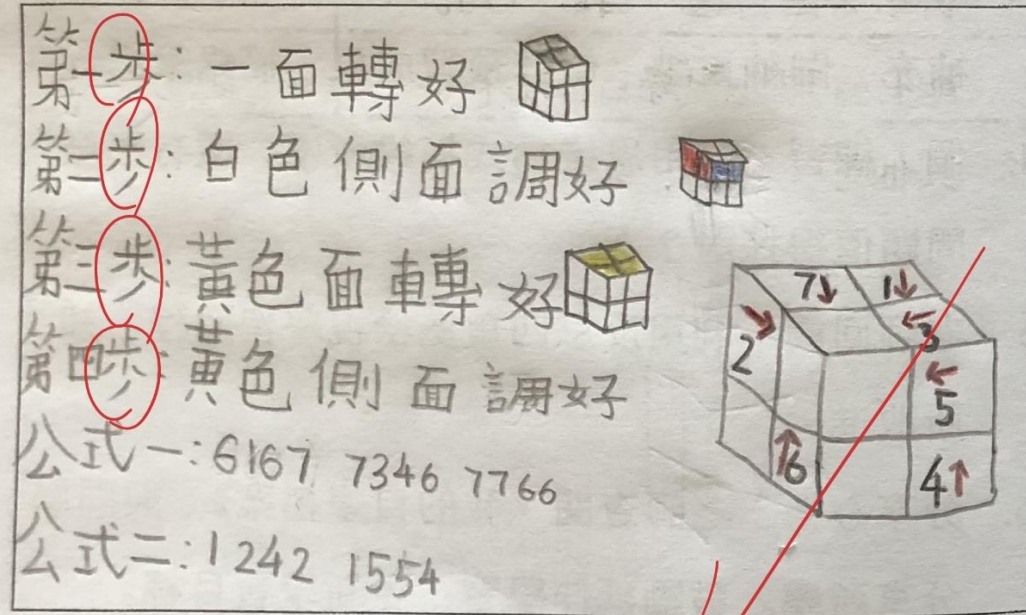 第一步：一面轉好
第二步：白色側面調好
第三步：黃色面轉好
第四步：黃色側面調好
公式一：6167 7346 7766
公式二：1242 1554
7↓ 1↓
→ ←
2 3
←
5
↑6 4↑